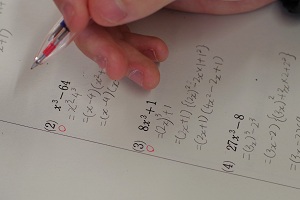 (2) x³−64
=x³−4³
=(x−4)(x²
=(x−4)(x²
(3) 8x³+1
=(2x)³+1
=(2x+1){(2x)²−2x×1+1²}
=(2x+1)(4x²−2x+1)
(4) 27x³−8
=(3x)³−2³
=(3x−2){(3x)²+3x
=(3x−2)